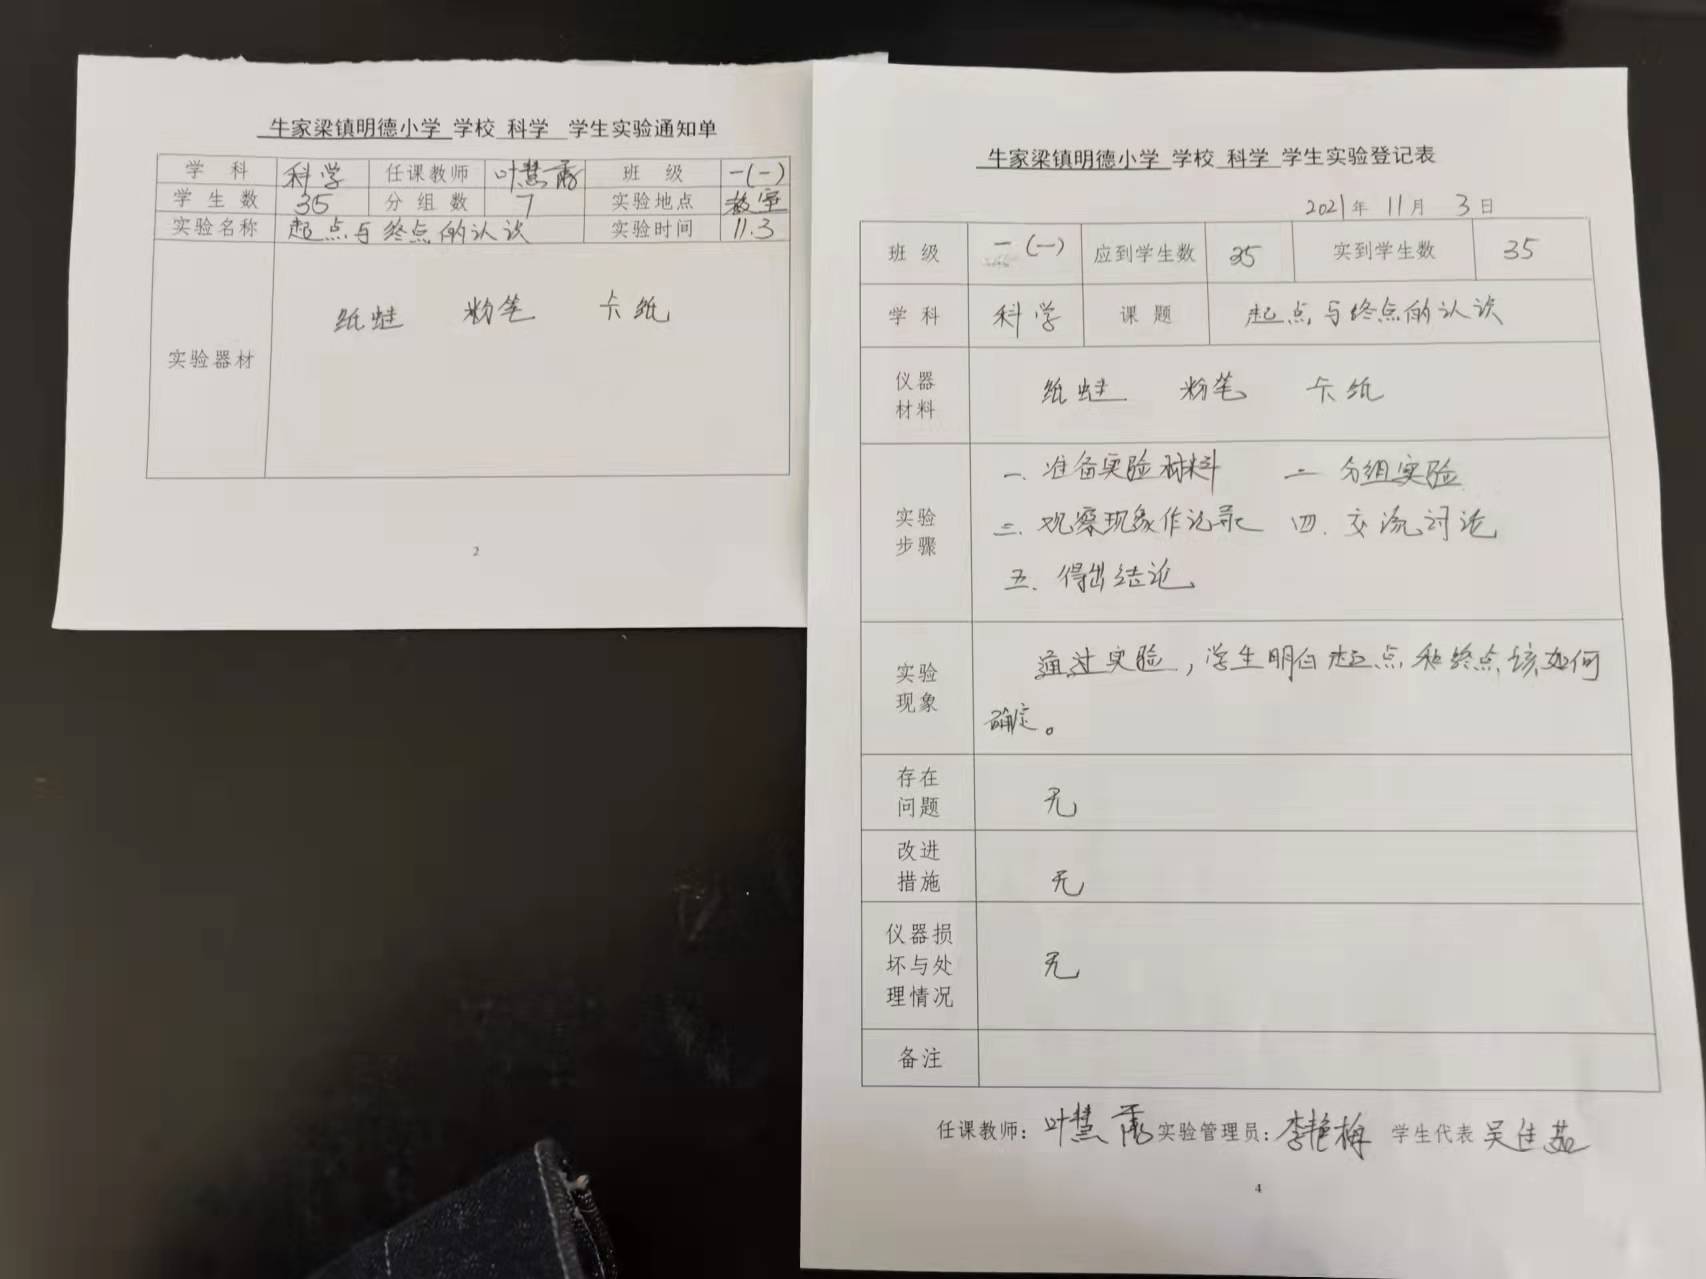 牛家梁镇明德小学 学校 科学 学生实验通知单
学 科 科学 任课教师 叶慧 班 级 一(一)
学 生 数 35 分 组 数 7 实验地点 教室
实验名称 起点与终点的认识 实验时间 11.3
实验器材 纸蛙 粉笔 卡纸
2
牛家梁镇明德小学 学校 科学 学生实验登记表
2021年 11月 3日
班 级 一(一) 应到学生数 35 实到学生数 35
学 科 科学 课 题 起点与终点的认识
仪器
材料
纸蛙 粉笔 卡纸
实验
步骤
一、准备实验材料 二 分组实验
三、观察现象作记录 四、交流讨论
五、得出结论
实验
现象
通过实验，学生明白起点和终点该如何
确定。
存在
问题
无
改进
措施
无
仪器损
坏与处
理情况
无
备注
任课教师：叶慧 实验管理员：李艳梅 学生代表 吴佳茹
4